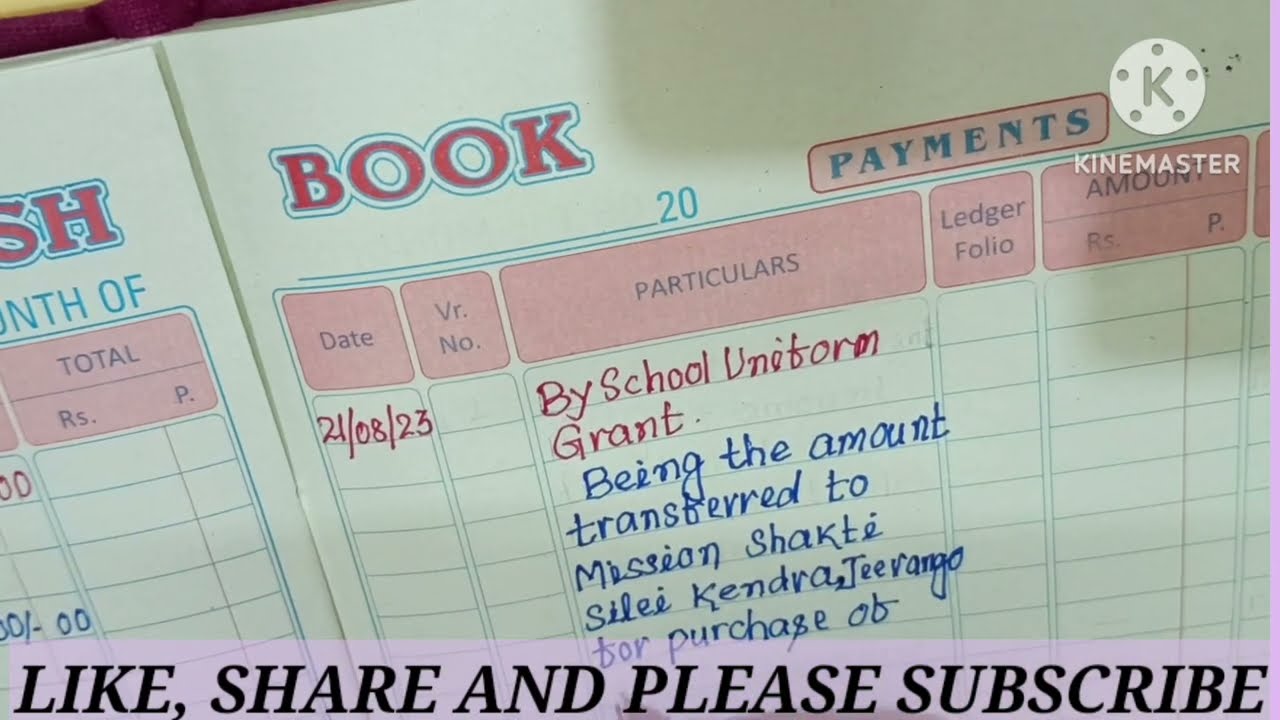 SH
NTH OF
TOTAL
Rs. P.
00
00/- 00
BOOK
20
PAYMENTS
Date
Vr. No.
PARTICULARS
Ledger Folio
AMOUNT
Rs. P.
21/08/23
By School Uniform
Grant.
Being the amount
transferred to
Mission Shakti
Silei Kendra, Jeerango
for purchase of
K
KINEMASTER
LIKE, SHARE AND PLEASE SUBSCRIBE